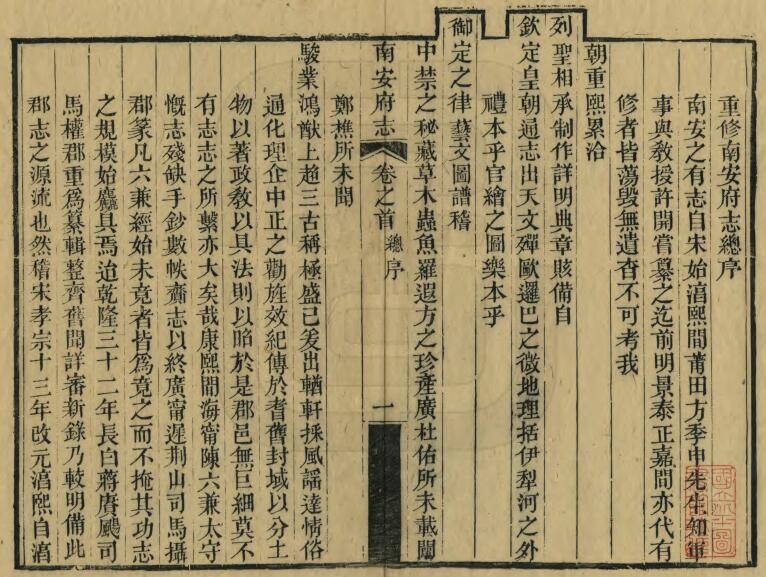 重修南安府志總序
南安之有志自宋始淳熙間莆田方季申先生知軍
事與敎授許開嘗纂之迄前明景泰正嘉間亦代有
修者皆蕩毀無遺杳不可考我
朝重熙累洽
列聖相承制作詳明典章賅備自
欽定皇朝通志出天文殫歐邏巴之徵地理括伊犁河之外
禮本乎官繪之圖樂本乎
御定之律藝文圖譜稽
中禁之秘藏草木蟲魚羅遐方之珍產廣杜佑所未載闡
南安府志 卷之首 總序 一
鄭樵所未聞
駿業鴻猷上超三古稱極盛已爰出輶軒採風謡達情俗
通化理企中正之勸旌效紀傳於耆舊封域以分土
物以著政敎以具法則以昭於是郡邑無巨細莫不
有志志之所繫亦大矣哉康熙間海甯陳六兼太守
慨志殘缺手鈔數帙齎志以終廣甯遲荆山司馬攝
郡篆凡六兼經始未竟者皆爲竟之而不掩其功志
之規模始麤具焉迨乾隆三十二年長白蔣賡颺司
馬權郡重爲纂輯整齊舊聞詳審新錄乃較明備此
郡志之源流也然稽宋孝宗十三年改元淳熙自淳